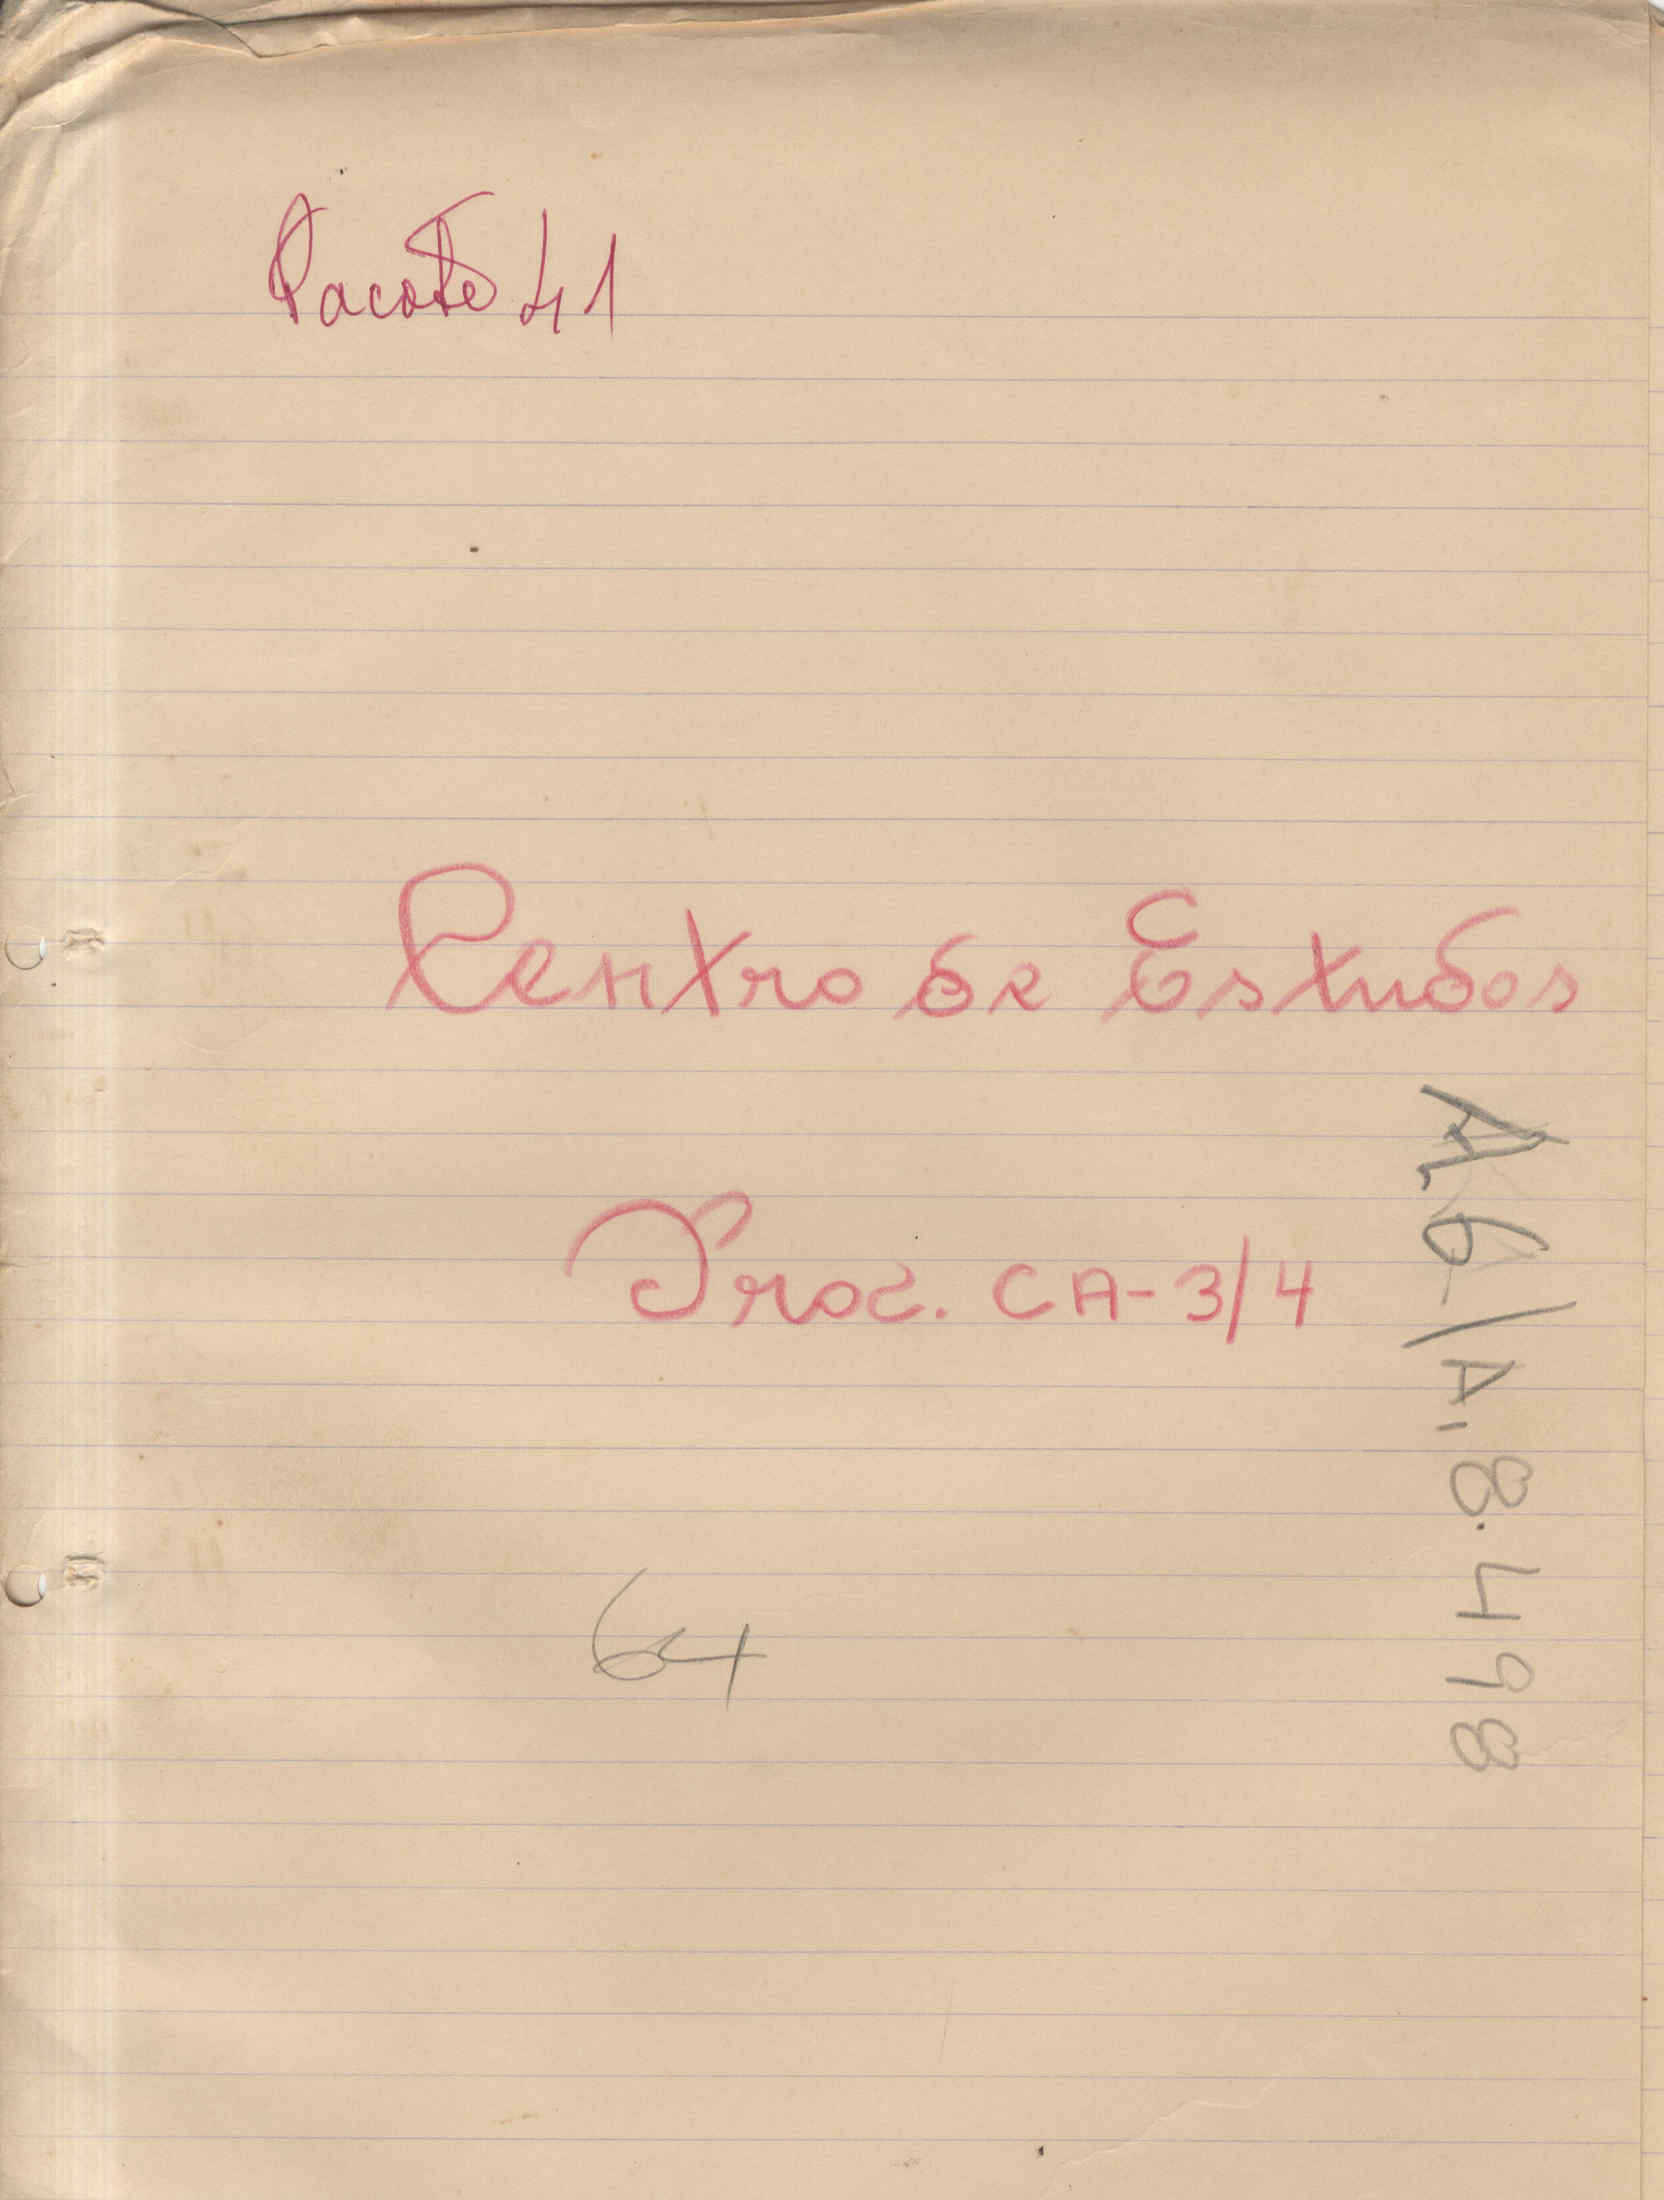 Pacote 41
Centro de Estudos
Proc. CA-3/4
A.6/A.8.498
64